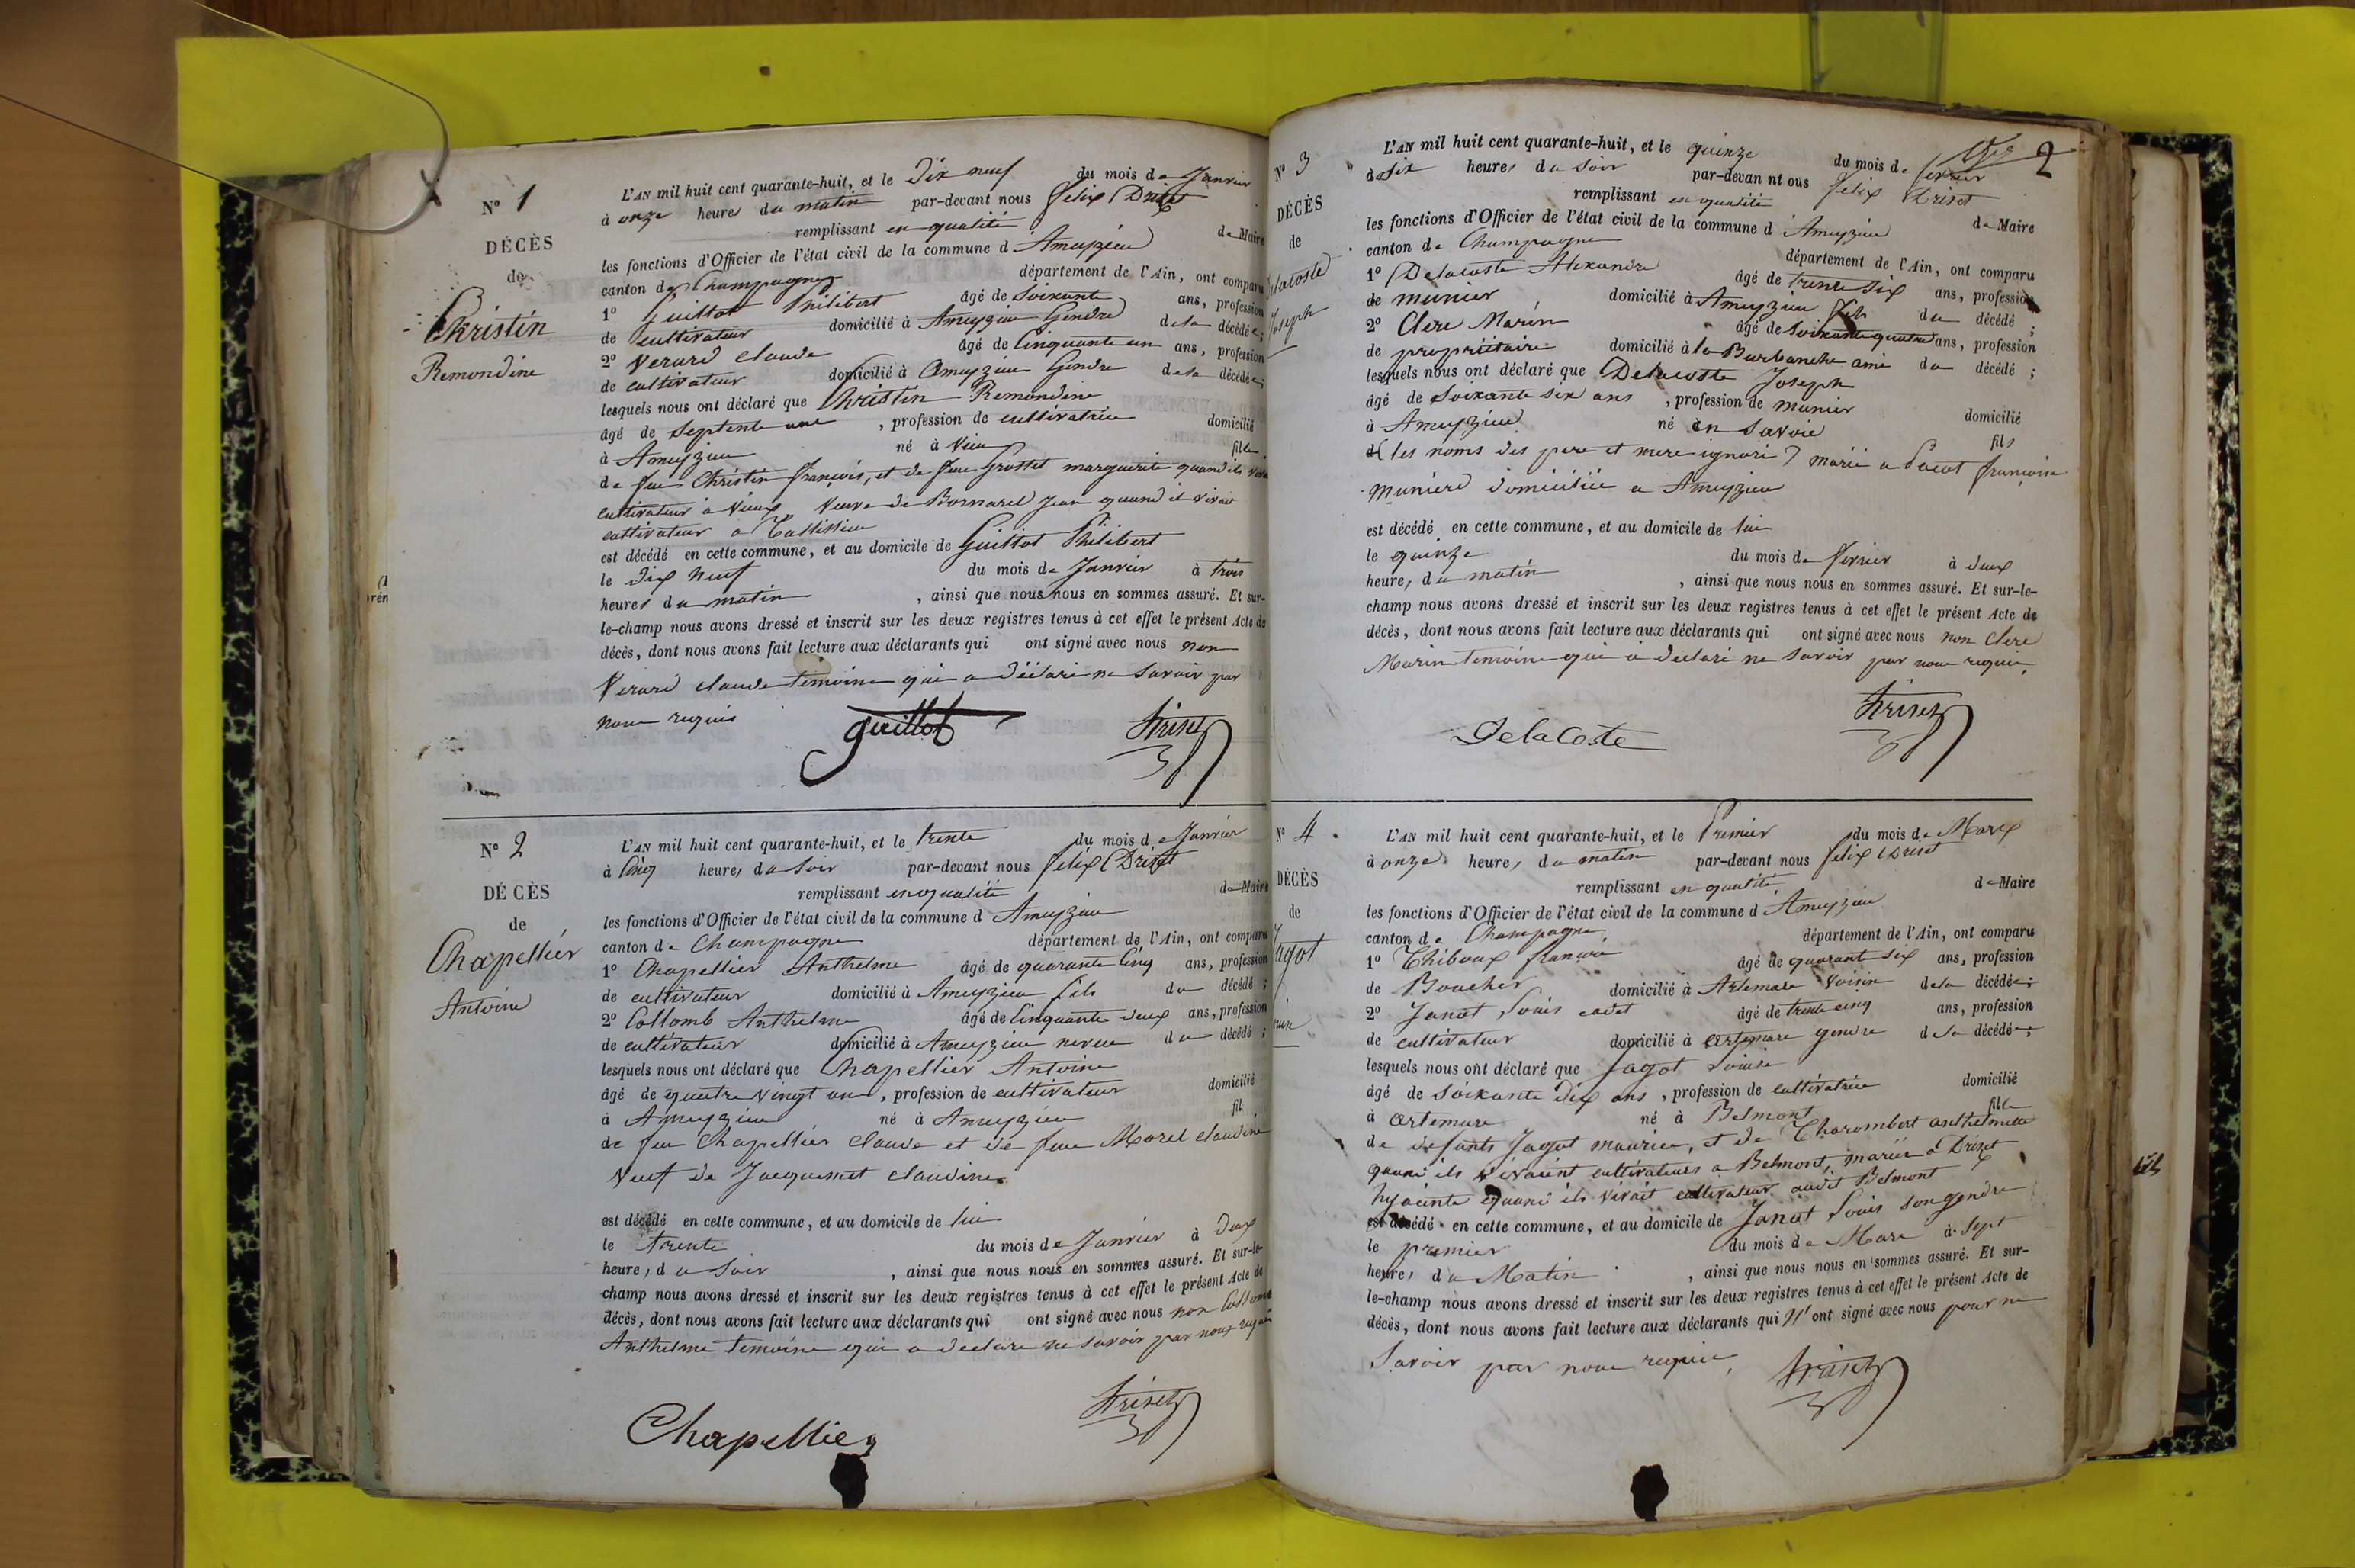 N° 1
DÉCÈS
de
Christin
Remondine
L'AN mil huit cent quarante-huit, et le Dix neuf du mois de Janvier
à onze heures du matin par-devant nous felix Driset
remplissant en qualité de Maire
les fonctions d'Officier de l'état civil de la commune d Ameyzieu
canton de Champagne département de l'Ain, ont comparu
1° Guillot Philibert âgé de Soixante ans, profession
de cultivateur domicilié à Ameyzieu Gendre de la décédée;
2° Verard claude âgé de Cinquante un ans, profession
de cultivateur domicilié à Ameyzieu Gendre de la décédée;
lesquels nous ont déclaré que Christin Remondine
âgé de septente une, profession de cultivatrice domicilié
à Ameyzieu né à Vieu fille
de feu Christin françois, et de feue Grosset marguerite quand ils
cultivateur à Vieux, Veuve de Bornarel Jean quand il vivait
cultivateur a Talissieu
est décédé en cette commune, et au domicile de Guillot Philibert
le dix neuf du mois de Janvier à trois
heures du matin, ainsi que nous nous en sommes assuré. Et sur-
le-champ nous avons dressé et inscrit sur les deux registres tenus à cet effet le présent Acte de
décès, dont nous avons fait lecture aux déclarants qui ont signé avec nous non
Verard claude temoine qui a déclaré ne savoir par
nous requis
guillot Driset
N° 2
DÉCÈS
de
Chapellier
Antoine
L'AN mil huit cent quarante-huit, et le trente du mois de Janvier
à Cinq heures du Soir par-devant nous felix Driset
remplissant en qualité de Maire
les fonctions d'Officier de l'état civil de la commune d Ameyzieu
canton de Champagne département de l'Ain, ont comparu
1° Chapellier Anthelme âgé de quarante Cinq ans, profession
de cultivateur domicilié à Ameyzieu fils du décédé;
2° Collomb Anthelme âgé de Cinquante deux ans, profession
de cultivateur domicilié à Ameyzieu neveu du décédé;
lesquels nous ont déclaré que Chapellier Antoine
âgé de quatre vingt ans, profession de cultivateur domicilié
à Ameyzieu né à Ameyzieu fil
de feu Chapellier Claude et de feue Morel claudine
Veuf de Jacquemet claudine
est décédé en cette commune, et au domicile de lui
le trente du mois de Janvier à Deux
heures du Soir, ainsi que nous nous en sommes assuré. Et sur-le-
champ nous avons dressé et inscrit sur les deux registres tenus à cet effet le présent Acte de
décès, dont nous avons fait lecture aux déclarants qui ont signé avec nous non Collomb
Anthelme temoine qui a declare ne savoir par nous requis
Chapellier Driset
2
N° 3
DÉCÈS
de
Delacoste
Joseph
L'AN mil huit cent quarante-huit, et le quinze du mois de fevrier
à six heures du Soir par-devan nt ous felix Driset
remplissant en qualité de Maire
les fonctions d'Officier de l'état civil de la commune d Ameyzieu
canton de Champagne département de l'Ain, ont comparu
1° Delacoste Alexandre âgé de trente six ans, profession
de munier domicilié à Ameyzieu fils du décédé;
2° Clerc Marin âgé de Soixante quatre ans, profession
de propriétaire domicilié à la Burbanche ami du décédé;
lesquels nous ont déclaré que Delacoste Joseph
âgé de Soixante six ans, profession de munier domicilié
à Ameyzieu né en Savoie fils
d( les noms des pere et mere ignoré) marié a françoise
muniere domiciliée a Ameyzieu
est décédé en cette commune, et au domicile de lui
le quinze du mois de fevrier à deux
heures du matin, ainsi que nous nous en sommes assuré. Et sur-le-
champ nous avons dressé et inscrit sur les deux registres tenus à cet effet le présent Acte de
décès, dont nous avons fait lecture aux déclarants qui ont signé avec nous non Clerc
Marin temoine qui a declaré ne savoir par nous requis,
Delacoste Driset
N° 4
DÉCÈS
de
agot
L'AN mil huit cent quarante-huit, et le Premier du mois de Mars
à onze heures du matin par-devant nous felix Driset
remplissant en qualité de Maire
les fonctions d'Officier de l'état civil de la commune d Ameyzieu
canton de Champagne département de l'Ain, ont comparu
1° Thiboux françois âgé de quarant six ans, profession
de Boucher domicilié à Artemare Voisin de la décédée;
2° Janet Louis cadet âgé de trente cinq ans, profession
de cultivateur domicilié à Artemare gendre de la décédée;
lesquels nous ont déclaré que Jagot Louise
âgé de Soixante Dix ans, profession de cultivatrice domicilié
à Artemare né à Belmont fille
de defunts Jagot maurice, et de Charombert anthelmette
quand ils vivaient cultivateurs a Belmont, mariée a Driset
hyacinte quand ils vivait cultivateur audit Belmont
est décédé en cette commune, et au domicile de Janet Louis son gendre
le premier du mois de Mars à Sept
heures du Matin, ainsi que nous nous en sommes assuré. Et sur-
le-champ nous avons dressé et inscrit sur les deux registres tenus à cet effet le présent Acte de
décès, dont nous avons fait lecture aux déclarants qui n'ont signé avec nous pour ne
Savoir par nous requis, Driset